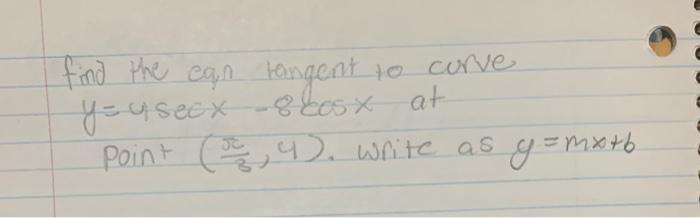 find the eqn tangent to curve
y=4secx -8cosx at
point (π/3,4). Write as y=mx+b